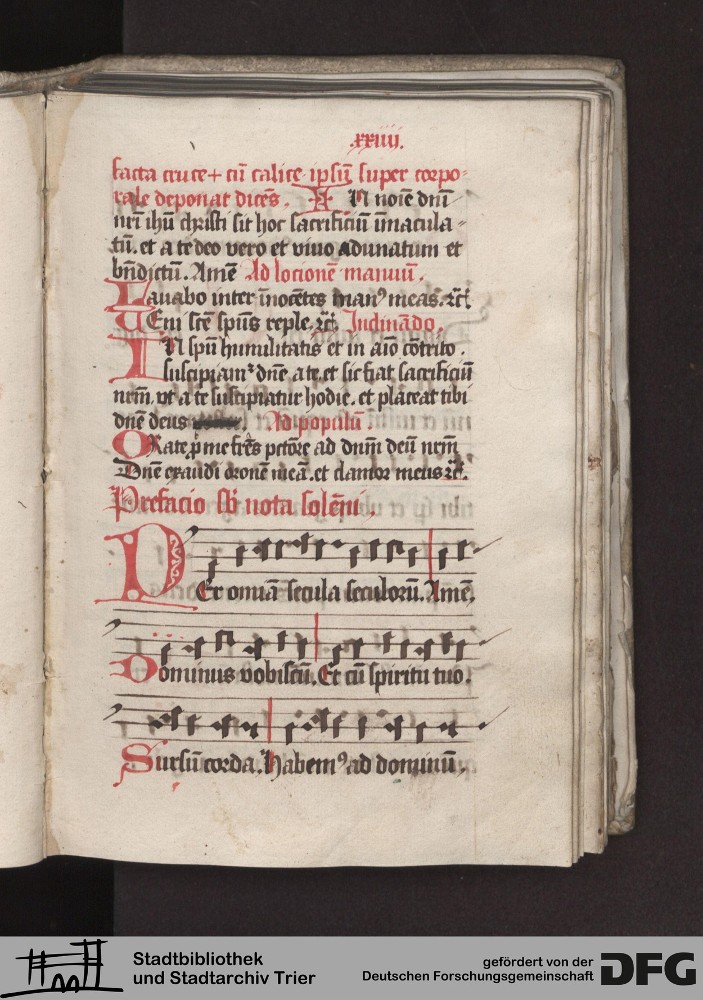 .xxiiij.
facta cruce + cū calice ipsū super corpo-
rale deponat dicēs. + In noīe dn̄i
nr̄i ihū christi sit hoc sacrificiū īmacula-
tū. et a te deo vero et viuo adunatum et
bn̄dictū. Amē Ad locionē manuū.
Lauabo inter īnocētes manꝰ meas. ⁊cͭ.
Ueni scē spūs reple. ⁊cͭ. Inclinādo.
In spū humilitatis et in aīo cōtrito.
suscipiamꝰ dn̄e a te. et sic fiat sacrificiū
nrm̄. vt a te suscipiatur hodie. et placeat tibi
dn̄e deus Ad populū.
Orate p̄ me frēs pctōre ad dnm̄ deū nrm̄
Dn̄e exaudi oronē meā. et clamor meus ⁊cͭ.
Prefacio sb̄ nota solēni.
Per omīa secula seculorū. Amē.
Dominus vobiscū. Et cū spiritu tuo.
Sursū corda. Habemꝰ ad dominū.
Stadtbibliothek
und Stadtarchiv Trier
gefördert von der
Deutschen Forschungsgemeinschaft
DFG